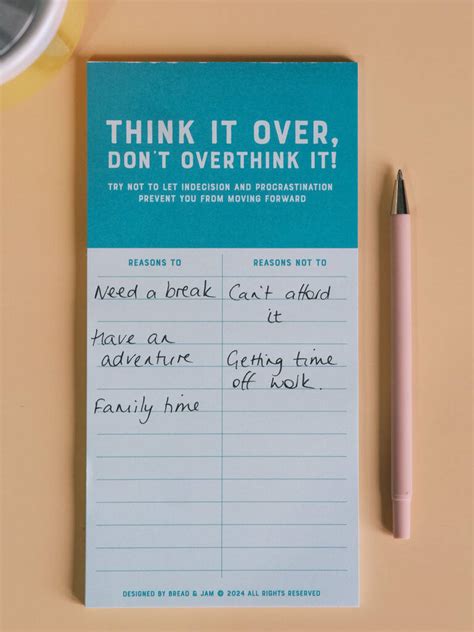 THINK IT OVER,
DON'T OVERTHINK IT!
TRY NOT TO LET INDECISION AND PROCRASTINATION
PREVENT YOU FROM MOVING FORWARD
REASONS TO
REASONS NOT TO
Need a break
Can't afford
it
Have an
adventure
Getting time
off work.
Family time
DESIGNED BY BREAD & JAM © 2024 ALL RIGHTS RESERVED